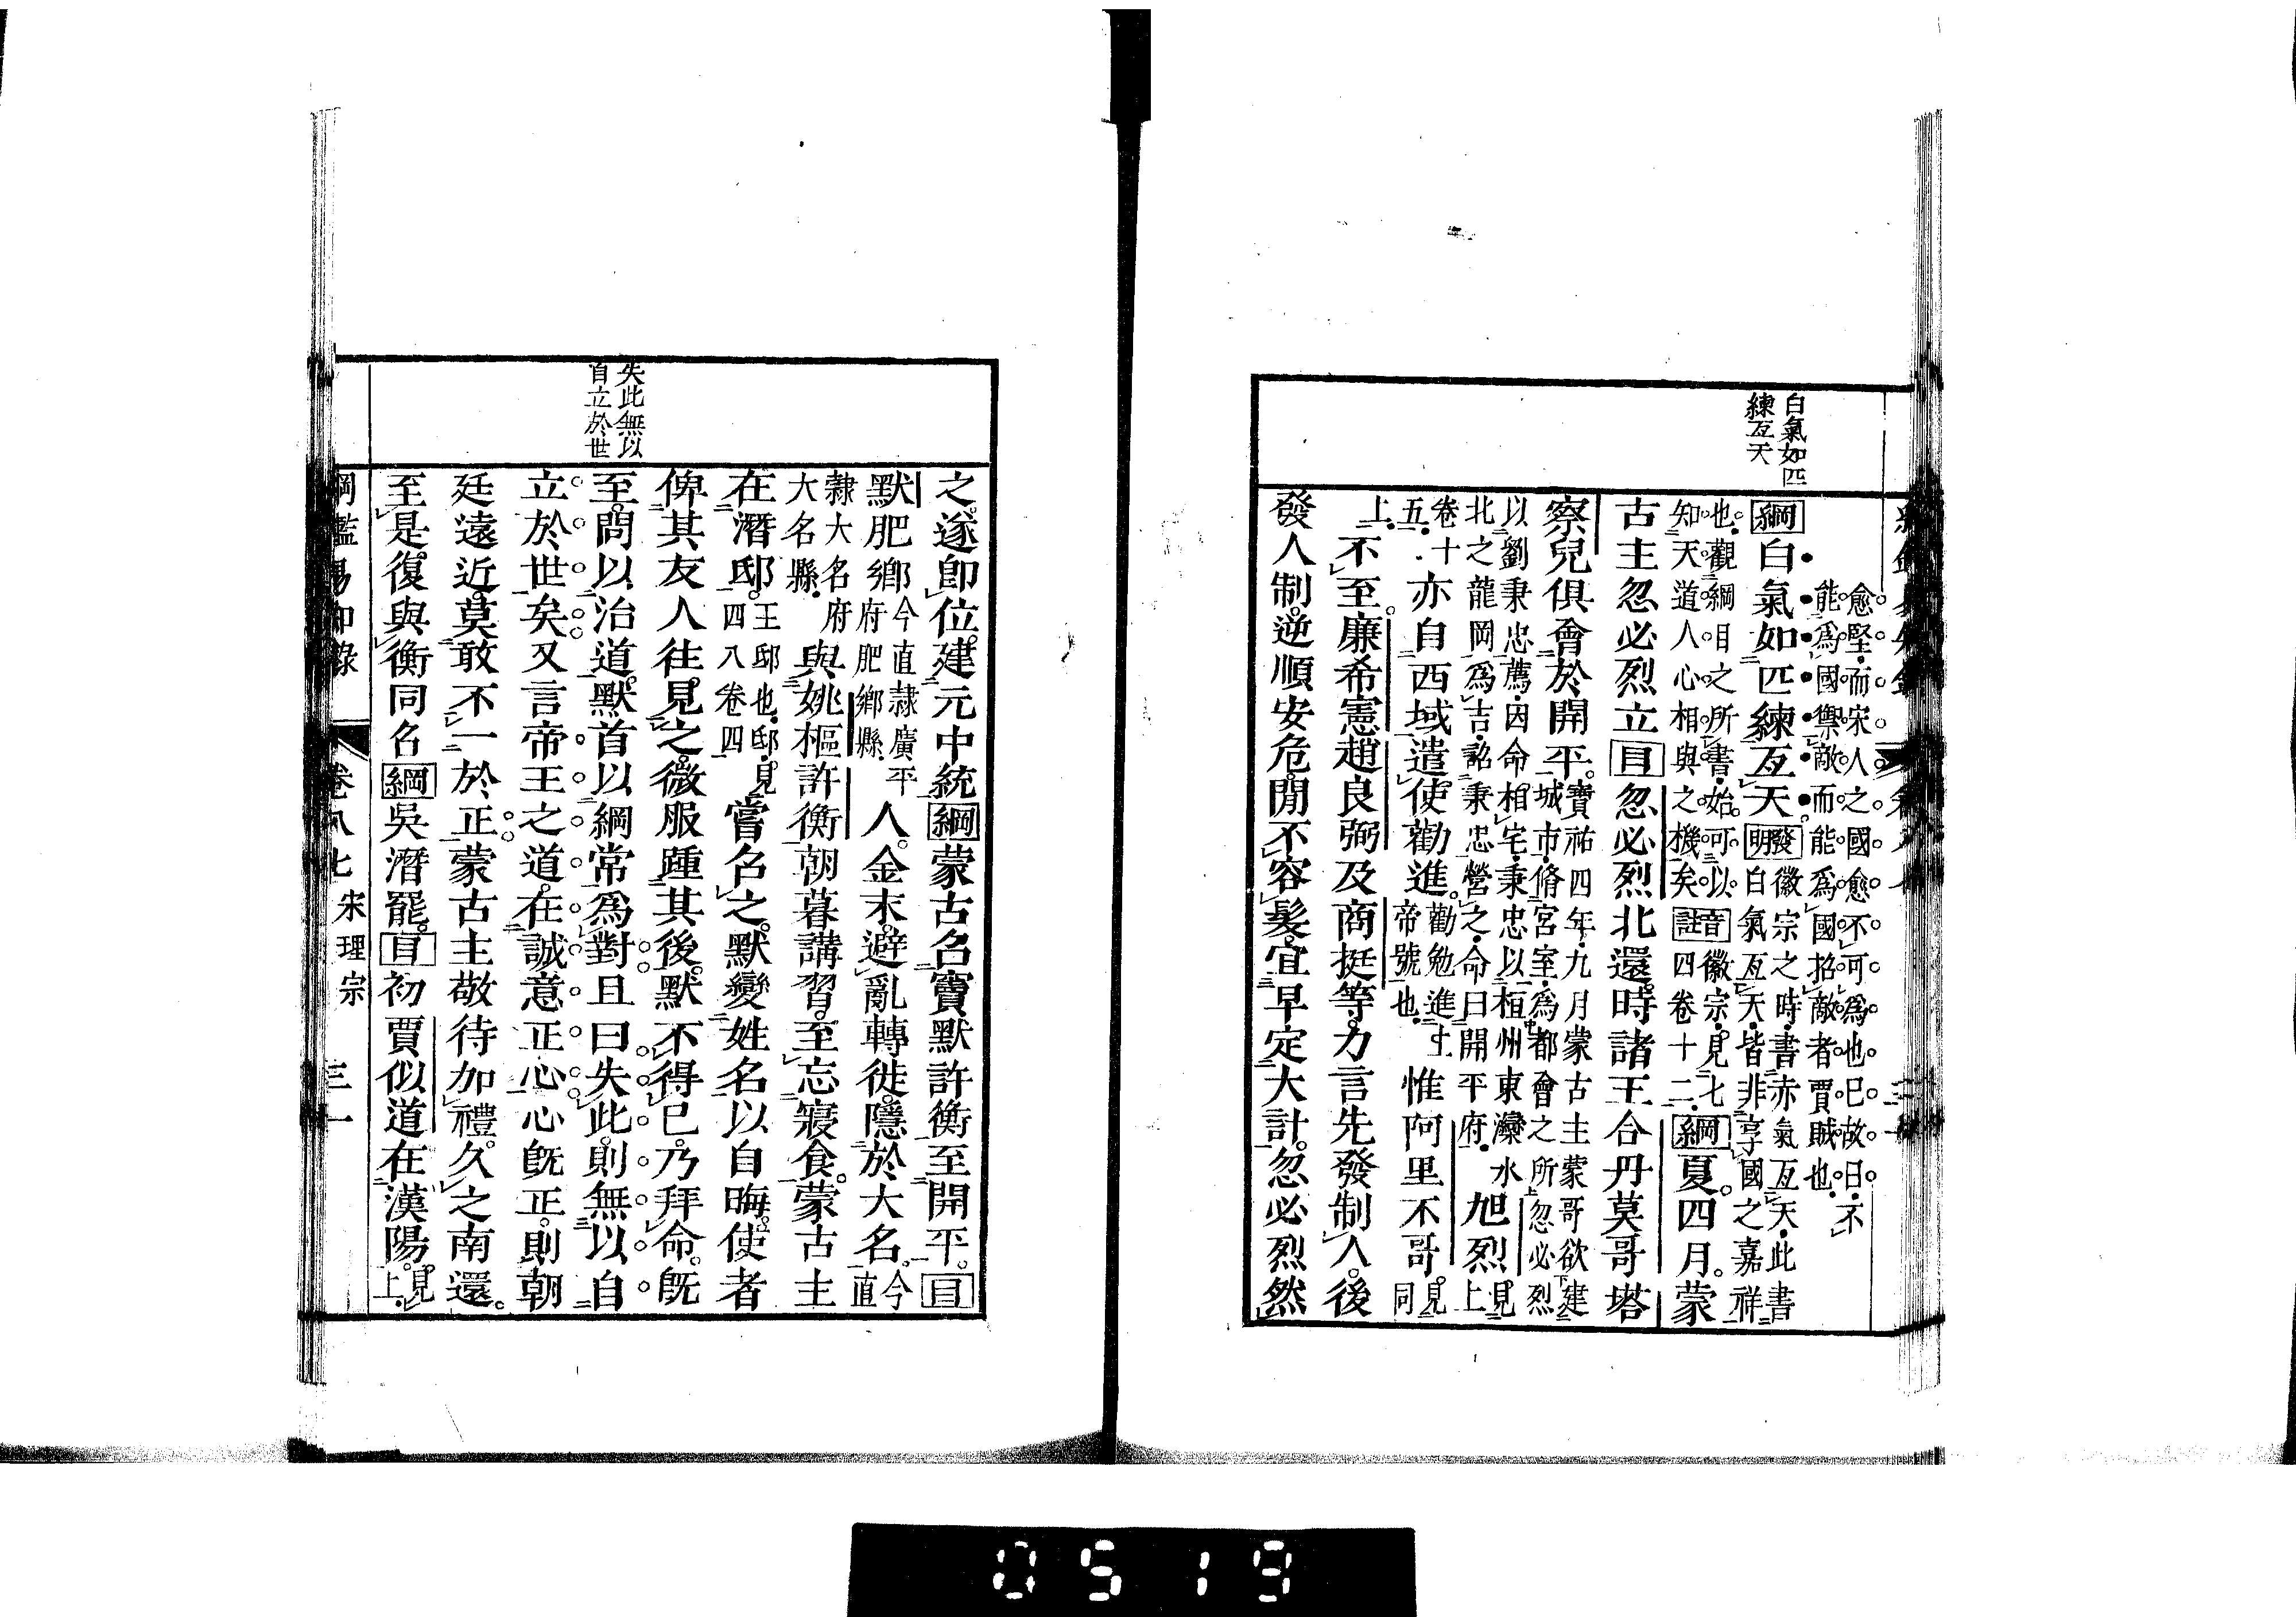 白氣如匹
練亙天
愈堅而宋人之國愈不可爲也已故曰不
能爲國禦敵而能爲國招敵者賈賊也
綱白氣如匹練亙天發明徽宗之時書赤氣亙天此書
白氣亙天皆非享國之嘉祥
也觀綱目之所書始可以
知天道人心相與之機矣音註徽宗見七
四卷十二綱夏四月蒙
古主忽必烈立目忽必烈北還時諸王合丹莫哥塔
察兒俱會於開平寶祐四年九月蒙古主蒙哥欲建
城市脩宮室爲都會之所忽必烈
以劉秉忠薦因命相宅秉忠以桓州東灤水
北之龍岡爲吉詔秉忠營之命曰開平府旭烈見
上
卷十
五亦自西域遣使勸進勸勉進上
帝號也惟阿里不哥見
同
上不至廉希憲趙良弼及商挺等力言先發制人後
發人制逆順安危閒不容髮宜早定大計忽必烈然
失此無以
自立於世
之遂卽位建元中統綱蒙古召竇默許衡至開平目
默肥鄉今直隸廣平
府肥鄉縣人金末避亂轉徙隱於大名今
直
隸大名府
大名縣與姚樞許衡朝暮講習至忘寢食蒙古主
在潛邸王邸也邸見
四八卷四嘗召之默變姓名以自晦使者
俾其友人往見之微服踵其後默不得已乃拜命既
至問以治道默首以綱常爲對且曰失此則無以自
立於世矣又言帝王之道在誠意正心心既正則朝
廷遠近莫敢不一於正蒙古主敬待加禮久之南還
至是復與衡同召綱吳潛罷目初賈似道在漢陽見
上
綱鑑易知錄 卷八七 宋理宗 三十一